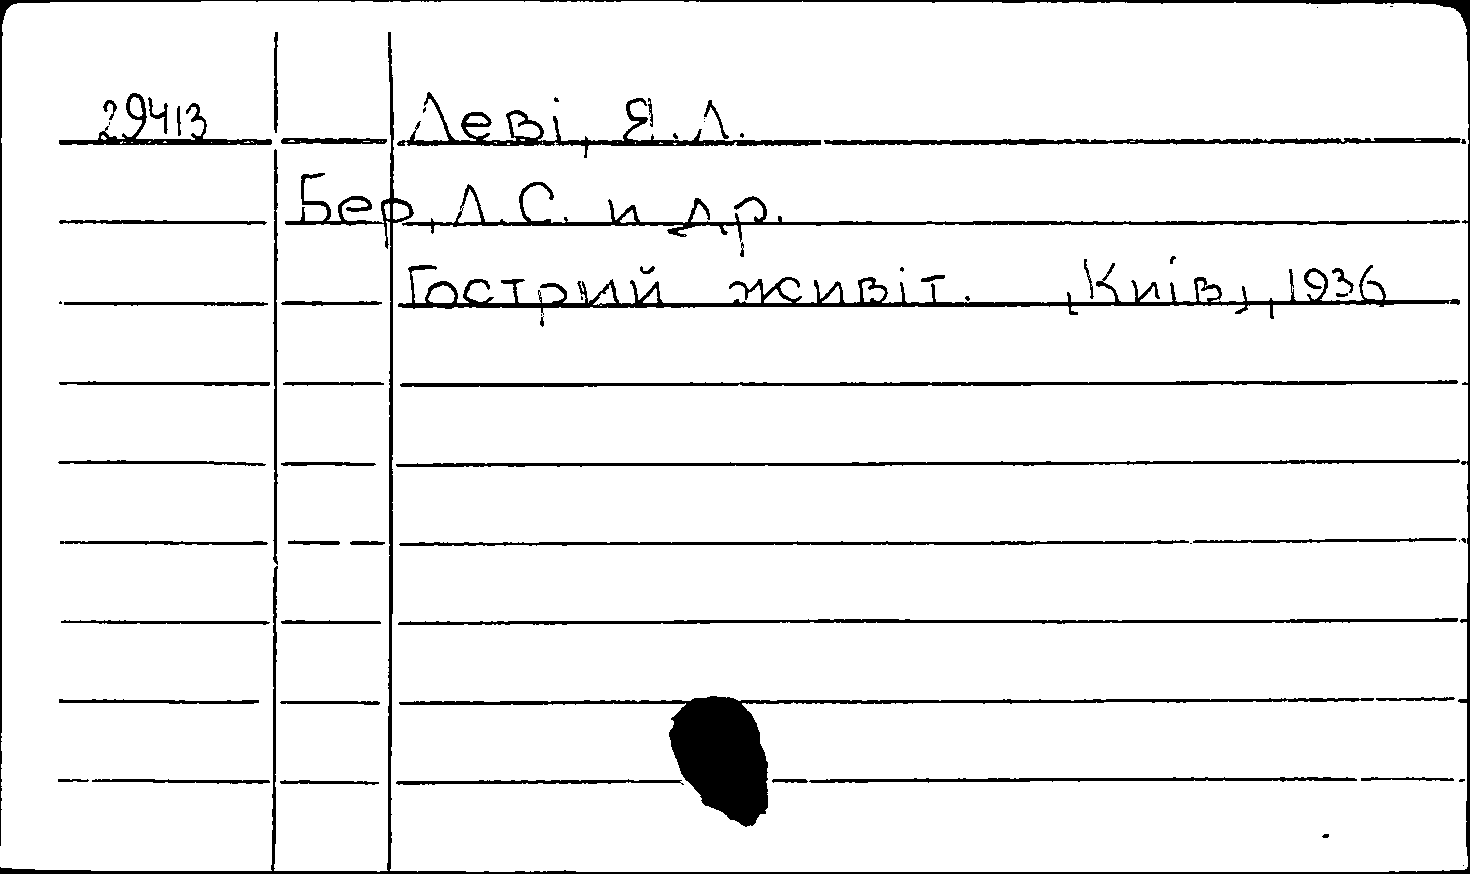 29413 Леві, Я.Л.
Бер, Л.С. и др.
Гострий живіт. [Київ], 1936